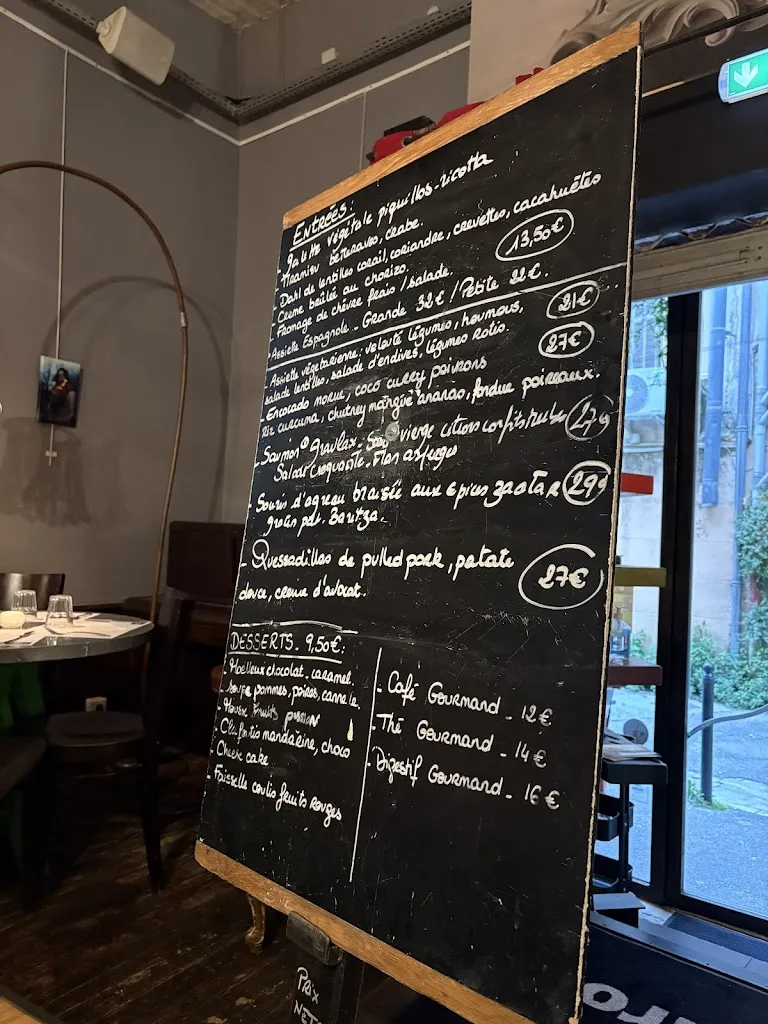 ENTRÉES:
- Galette végétale piquillos-ricotta
- Tiramisu betteraves, crabe.
- Dahl de lentilles corail, coriandre, crevettes, cacahuètes
- Creme brûlée au chorizo.
- Fromage de chèvre frais / salade.
13,50€
- Assiette Espagnole - Grande 32€ / Petite 22€.
- Assiette végétarienne: velouté légumes, houmous,
salade lentilles, salade d'endives, légumes rotis.
21€
- Encocado morue, coco curry poivrons
Riz curcuma, chutney mangue ananas, fondue poireaux.
27€
- Saumon gravlax. vierge citrons confits
Salade croquante. Flan asperges
27€
- Souris d'agneau braisée aux épices zaatar
29€
- Quessadillas de pulled pork, patate
douce, creme d'avocat.
27€
DESSERTS - 9,50€:
- Moelleux chocolat - caramel.
- Soupe pommes, poires, cannelle.
- Mousse Fruits passion
- mandarine, choco
- Cheese cake
- Faisselle coulis fruits rouges
- Café Gourmand - 12€
- Thé Gourmand - 14€
- Digestif Gourmand - 16€
Prix
NETS